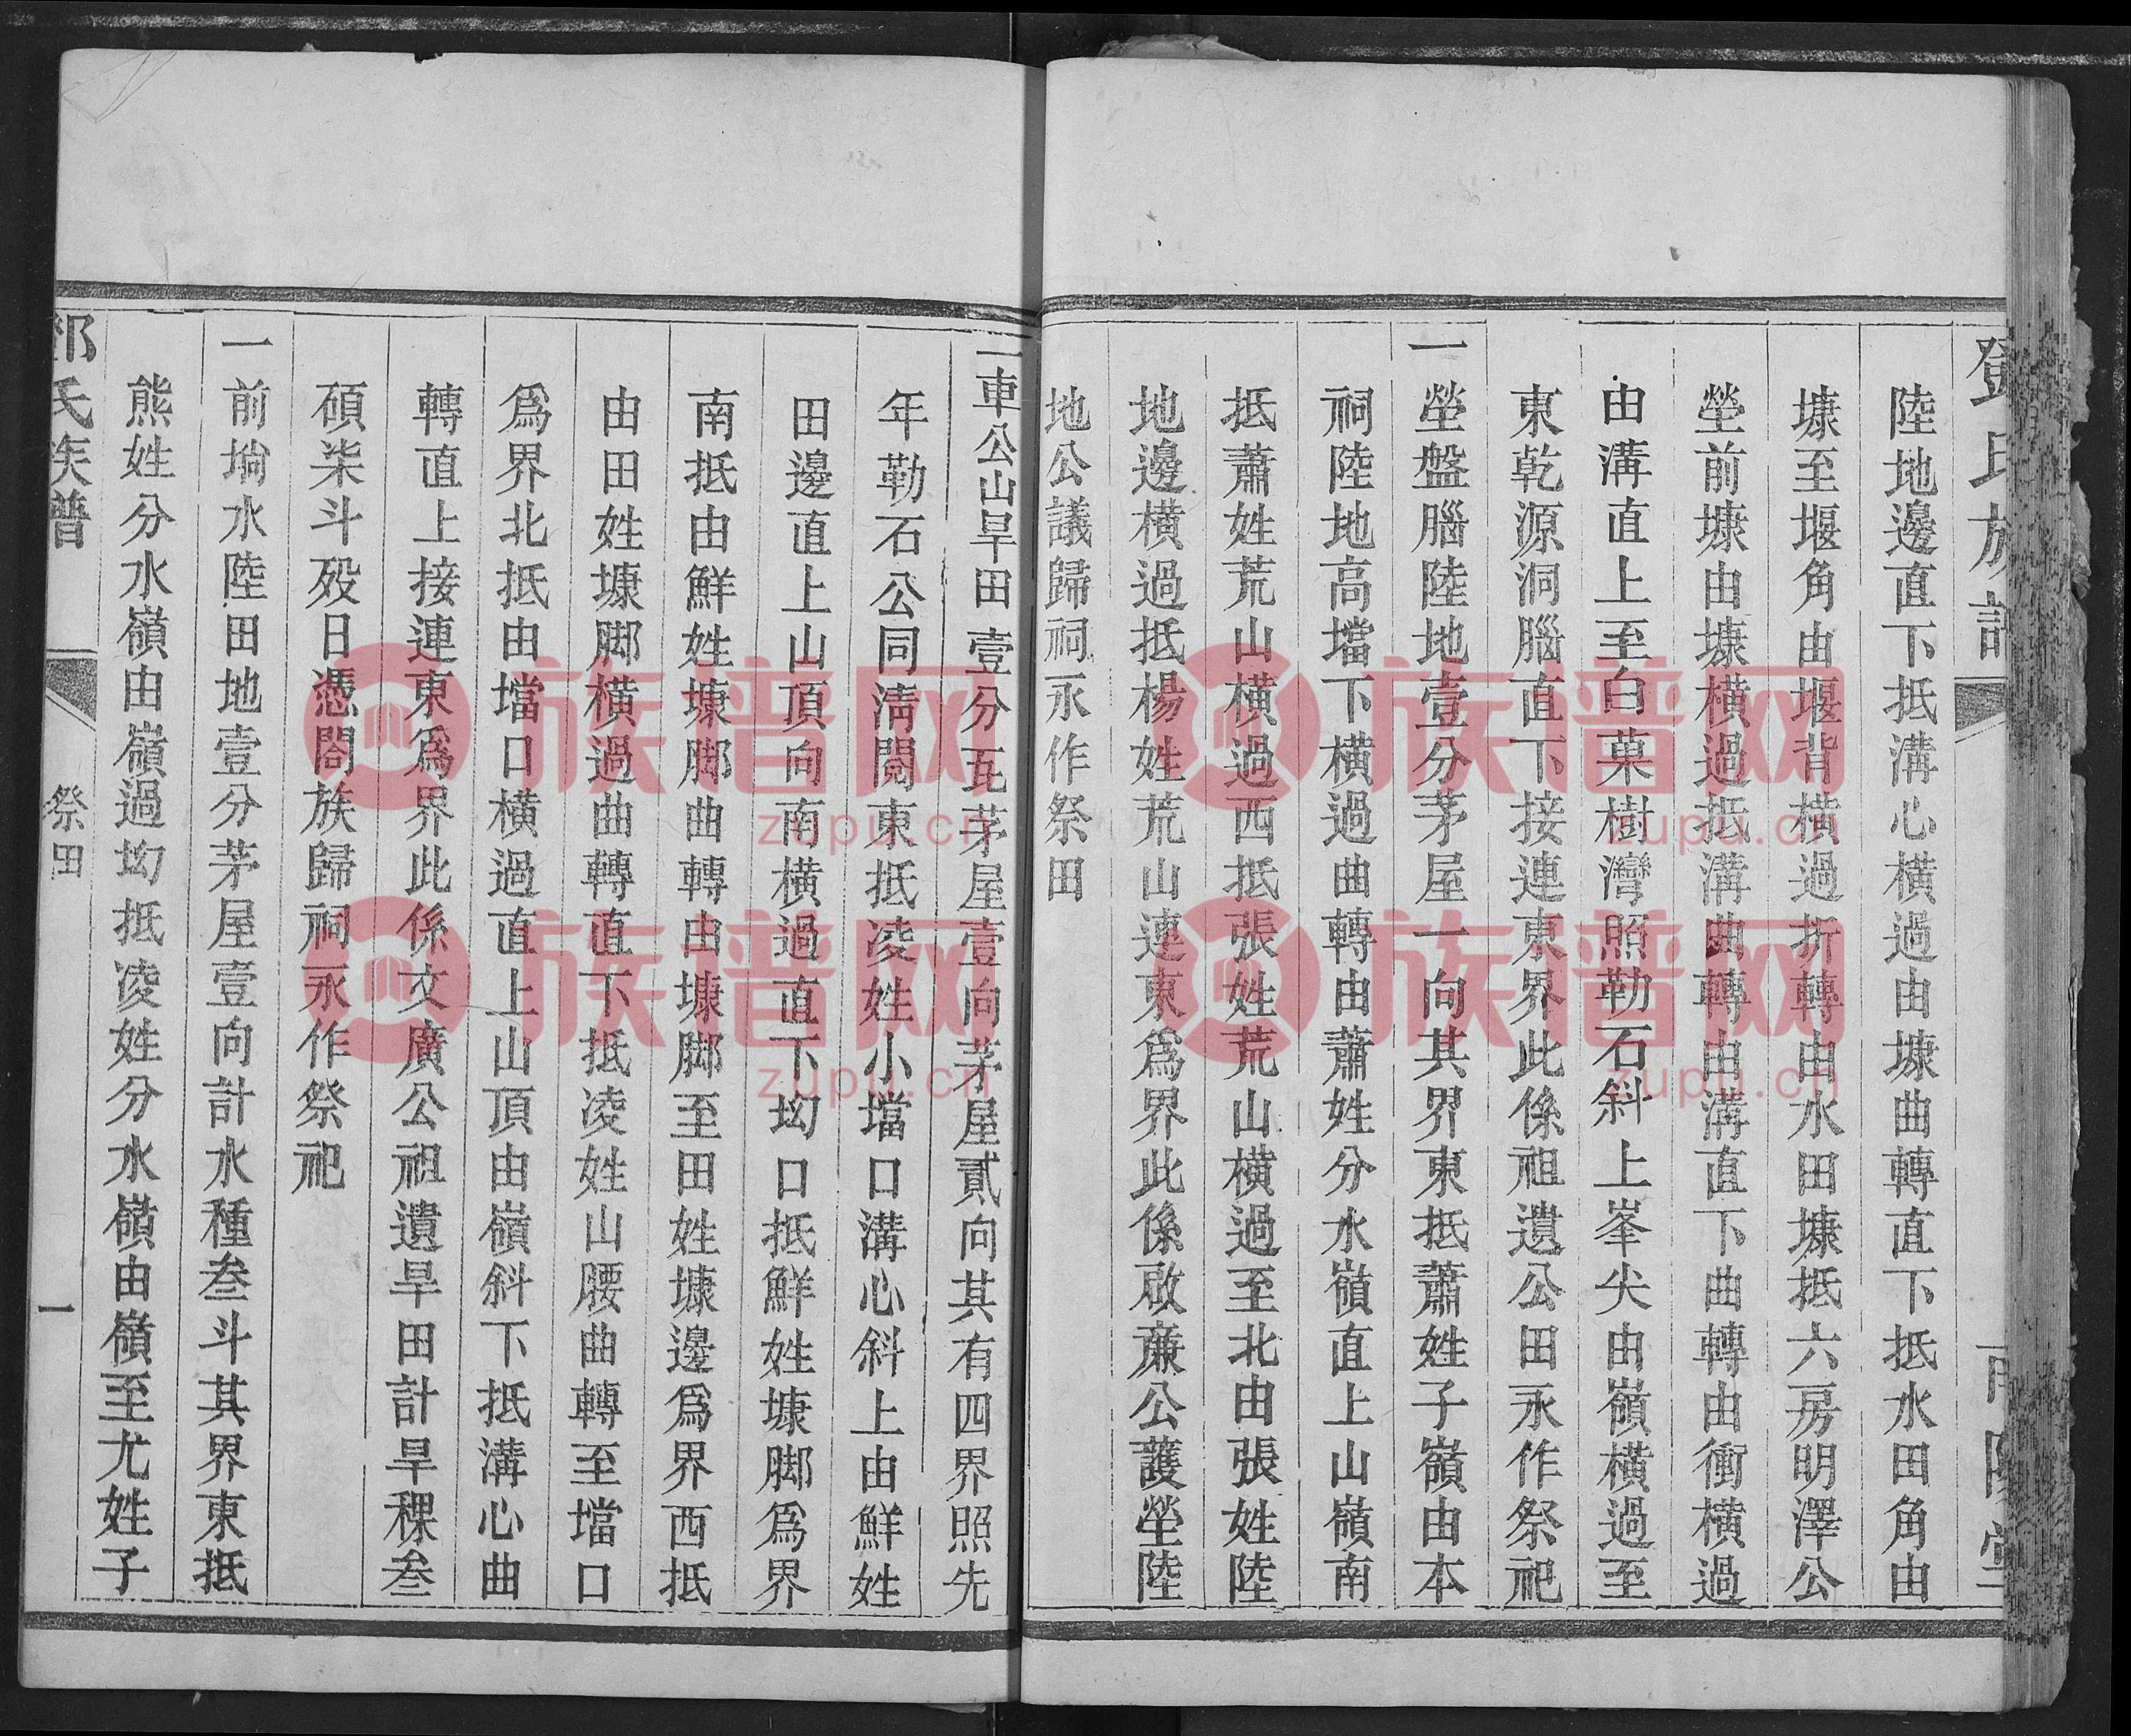 鄧氏族譜
南陽堂
陸地邊直下抵溝心橫過由塘曲轉直下抵水田角由
塘至堰角由堰背橫過折轉由水田塘抵六房明澤公
塋前塘由塘橫過抵溝曲轉由溝直下曲轉由衝橫過
由溝直上至白菓樹灣照勒石斜上峯尖由嶺橫過至
東乾源洞腦直下接連東界此係祖遺公田永作祭祀
一塋盤腦陸地壹分茅屋一向其界東抵蕭姓子嶺由本
祠陸地高壋下橫過曲轉由蕭姓分水嶺直上山嶺南
抵蕭姓荒山橫過西抵張姓荒山橫過至北由張姓陸
地邊橫過抵楊姓荒山連東爲界此係啟亷公護塋陸
地公議歸祠永作祭田
一車公山旱田壹分瓦茅屋壹向茅屋貳向其有四界照先
年勒石公同淸閱東抵凌姓小壋口溝心斜上由鮮姓
田邊直上山頂向南橫過直下坳口抵鮮姓塘脚爲界
南抵由鮮姓塘脚曲轉由塘脚至田姓塘邊爲界西抵
由田姓塘脚橫過曲轉直下抵凌姓山腰曲轉至壋口
爲界北抵由壋口橫過直上山頂由嶺斜下抵溝心曲
轉直上接連東爲界此係文廣公祖遺旱田計旱稞叁
碩柒斗歿日憑閤族歸祠永作祭祀
一前塝水陸田地壹分茅屋壹向計水種叁斗其界東抵
熊姓分水嶺由嶺過坳抵凌姓分水嶺由嶺至尤姓子
鄧氏族譜
祭田
一
族譜网
zupu.cn
族譜网
zupu.cn
族譜网
zupu.cn
族譜网
zupu.cn